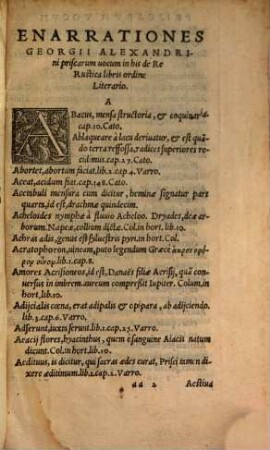 ENARRATIONES
GEORGII ALEXANDRI
ni priscarum uocum in his de Re
Rustica libris ordine
Literario.
A
ABacus, mensa structoria, & coquinaria.
cap.10. Cato.
Ablaqueare à lacu deriuatur, & est quãdo
terra reffossa, radices superiores re
cidimus.cap.27.Cato.
Abortet, abortum faciat.lib.2.cap.4.Varro.
Aceat, acidum fiat.cap.148.Cato.
Acetibuli mensura cum dicitur, heminæ signatur pars
quarta, id est, drachmæ quindecim.
Acheloides nymphæ à fluuio Acheloo. Dryades, deæ ar
borum. Napeæ, collium dictæ. Col.in hort.lib.10.
Achras adis, genus est syluestris pyri.in hort. Col.
Acratophoron, uineam, puto legendum Græcè
lib.1.cap.8.
Amores Acrisioneos, id est, Danaës filiæ Acrisij, quã con
uersus in imbrem aureum compressit Iupiter. Colum.in
hort.lib.10.
Adijcialis cœna, erat adipalis & opipara, ab adijciendo.
lib.3.cap.6.Varro.
Adserunt, iuxta serunt.lib.1.cap.16. Varro.
Aeacij flores, hyacinthus, quem è sanguine Aiacis natum
dicunt.Col.in hort.lib.10.
Aedituus, is dicitur, qui sacras ædes curat, Prisci tamen di
xere æditimum.lib.1.cap.2.Varro.
dd 2 Aestiua